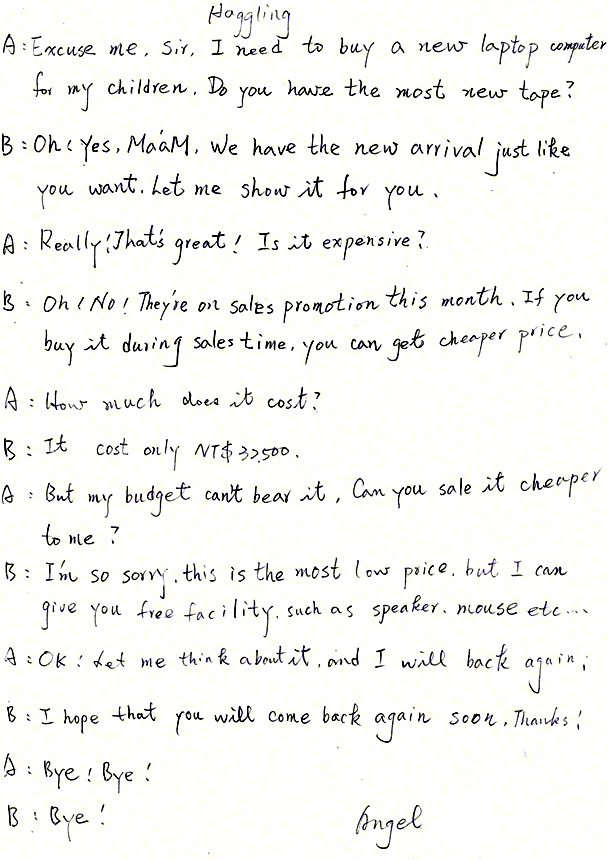 Haggling
A : Excuse me, Sir, I need to buy a new laptop computer
for my children. Do you have the most new tape?
B : Oh! Yes, Ma'aM, we have the new arrival just like
you want. Let me show it for you.
A : Really! That's great! Is it expensive?
B : Oh! No! They're on sales promotion this month. If you
buy it during sales time, you can get cheaper price.
A : How much does it cost?
B : It cost only NT$
A : But my budget can't bear it, Can you sale it cheaper
to me?
B : I'm so sorry, this is the most low price, but I can
give you free facility, such as speaker, mouse etc...
A : OK! Let me think about it, and I will back again;
B : I hope that you will come back again soon, Thanks!
A : Bye! Bye!
B : Bye!
Angel